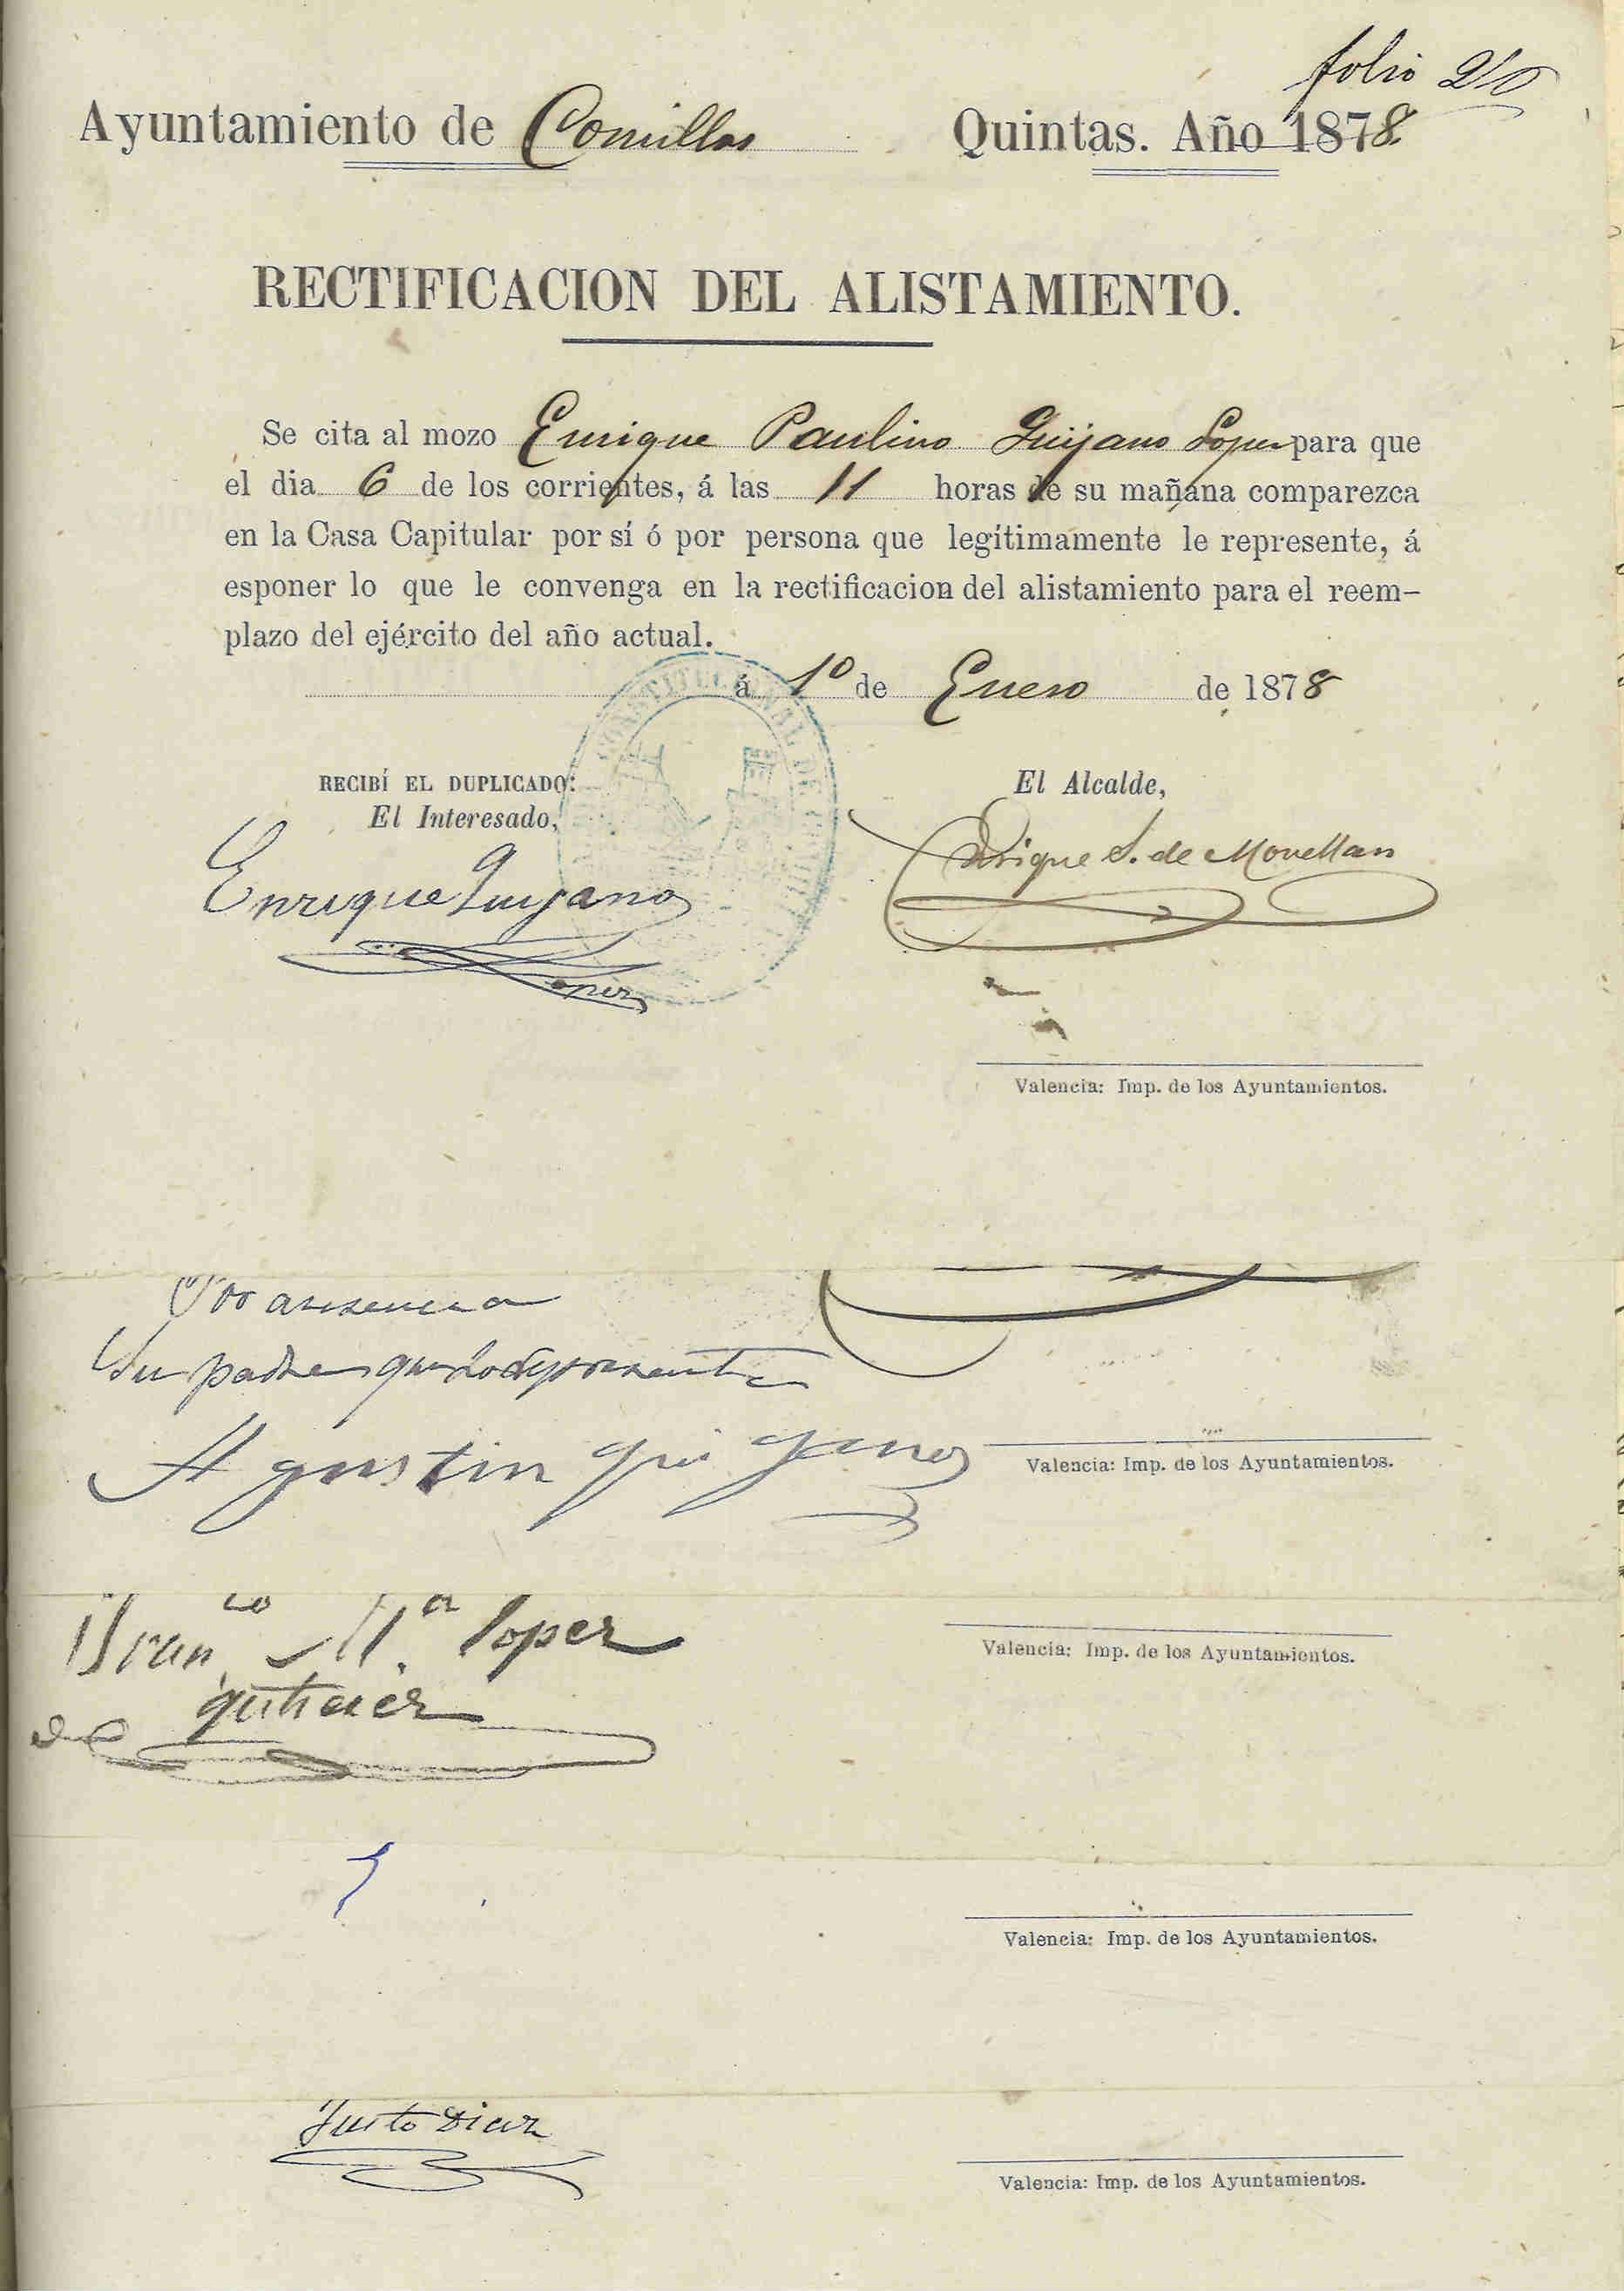 folio 20
Ayuntamiento de Comillas Quintas. Año 1878.
RECTIFICACION DEL ALISTAMIENTO.
Se cita al mozo Enrique Paulino Quijano Lopez para que
el dia 6 de los corrientes, á las 11 horas de su mañana comparezca
en la Casa Capitular por sí ó por persona que legítimamente le represente, á
esponer lo que le convenga en la rectificacion del alistamiento para el reem-
plazo del ejército del año actual.
á 1º de Enero de 1878
RECIBÍ EL DUPLICADO:
El Interesado,
Enrique Quijano
Lopez
El Alcalde,
Enrique S. de Movellan
CONSTITUCIONAL DE COMILLAS
Valencia: Imp. de los Ayuntamientos.
Por ausencia
Su padre que lo representa
Agustin Quijano
Valencia: Imp. de los Ayuntamientos.
Fran.co M.a Lopez
gutierrez
Valencia: Imp. de los Ayuntamientos.
Valencia: Imp. de los Ayuntamientos.
Justo Diaz
Valencia: Imp. de los Ayuntamientos.